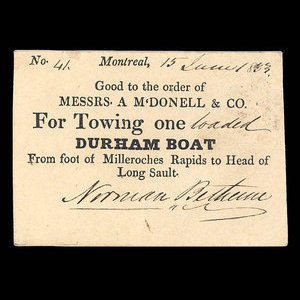 No. 41. Montreal, 15 June 1833.
Good to the order of
MESSRS. A M'DONELL & CO.
For Towing one loaded
DURHAM BOAT
From foot of Milleroches Rapids to Head of
Long Sault.
Norman Bethune